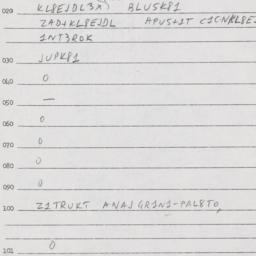 020 KL8EJDL3A) BLUSK81
ZAD+KL8EJDL APUS+1T C1CNKL8EJ
1NT3ROK
030 JUPK81
040 0
050 —
060 0
070 0
080 0
090 0
100 Z1TRUKT ANAJGR1N1-PAL8TO,
101 0